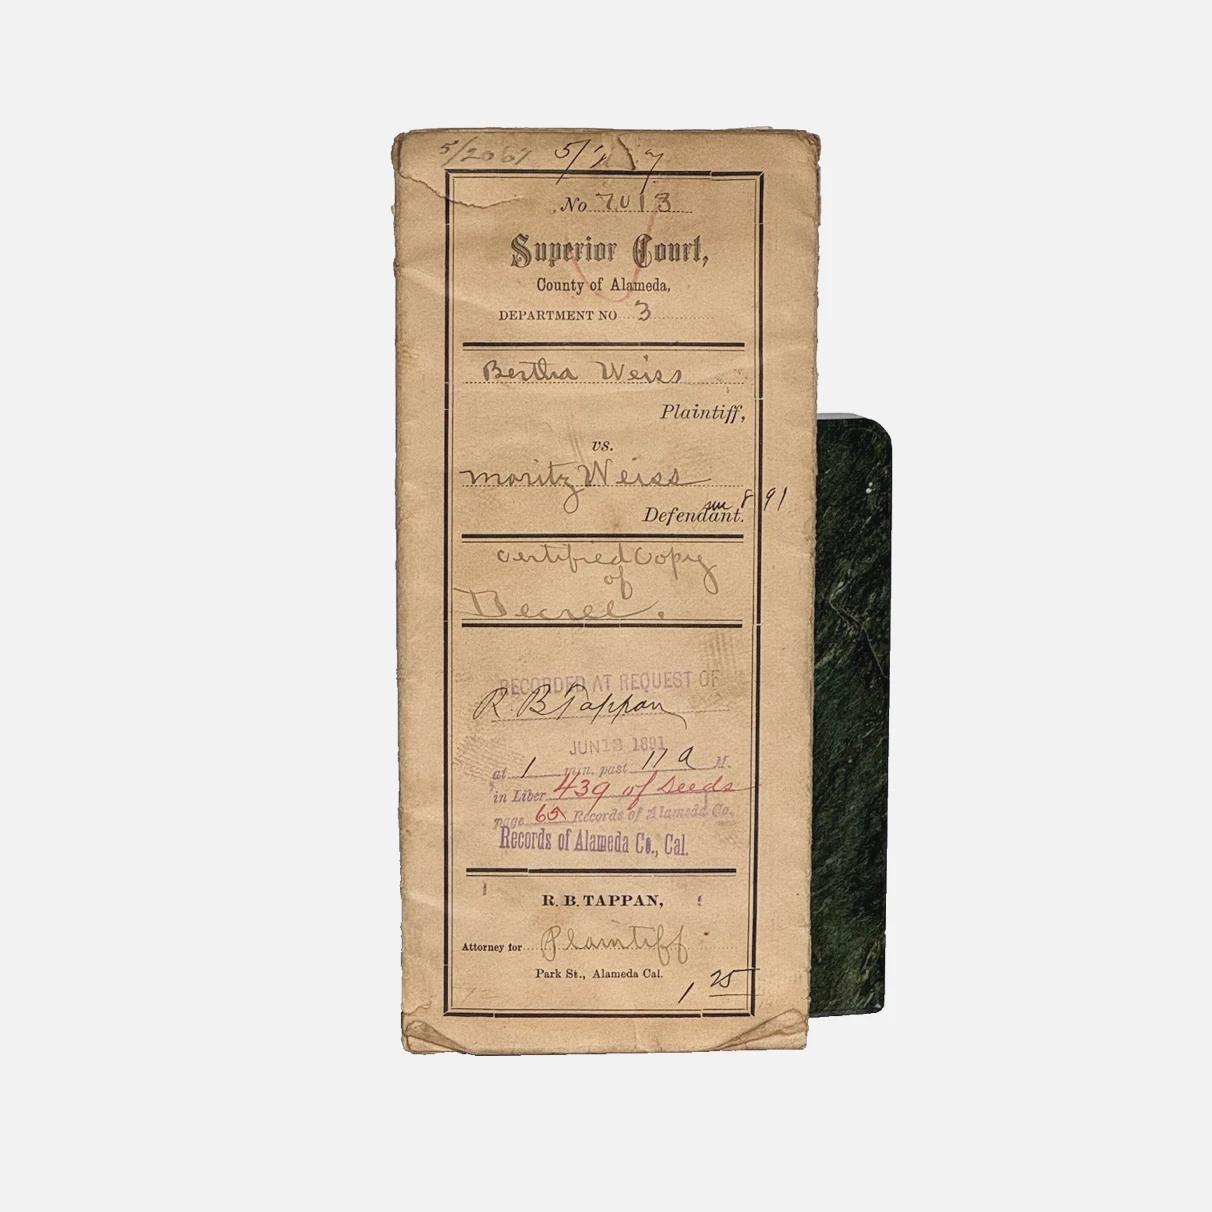 No 7013
Superior Court,
County of Alameda,
DEPARTMENT NO 3
Bertha Weiss
Plaintiff,
vs.
Moritz Weiss
Defendant.
Certified Copy
of
Decree.
RECORDED AT REQUEST OF
R. B. Tappan
JUN 13 1891
at 1 min. past 11 a M.
in Liber 439 of Deeds
page 65 Records of Alameda Co.
Records of Alameda Co., Cal.
R. B. TAPPAN,
Attorney for Plaintiff
Park St., Alameda Cal.
1 25